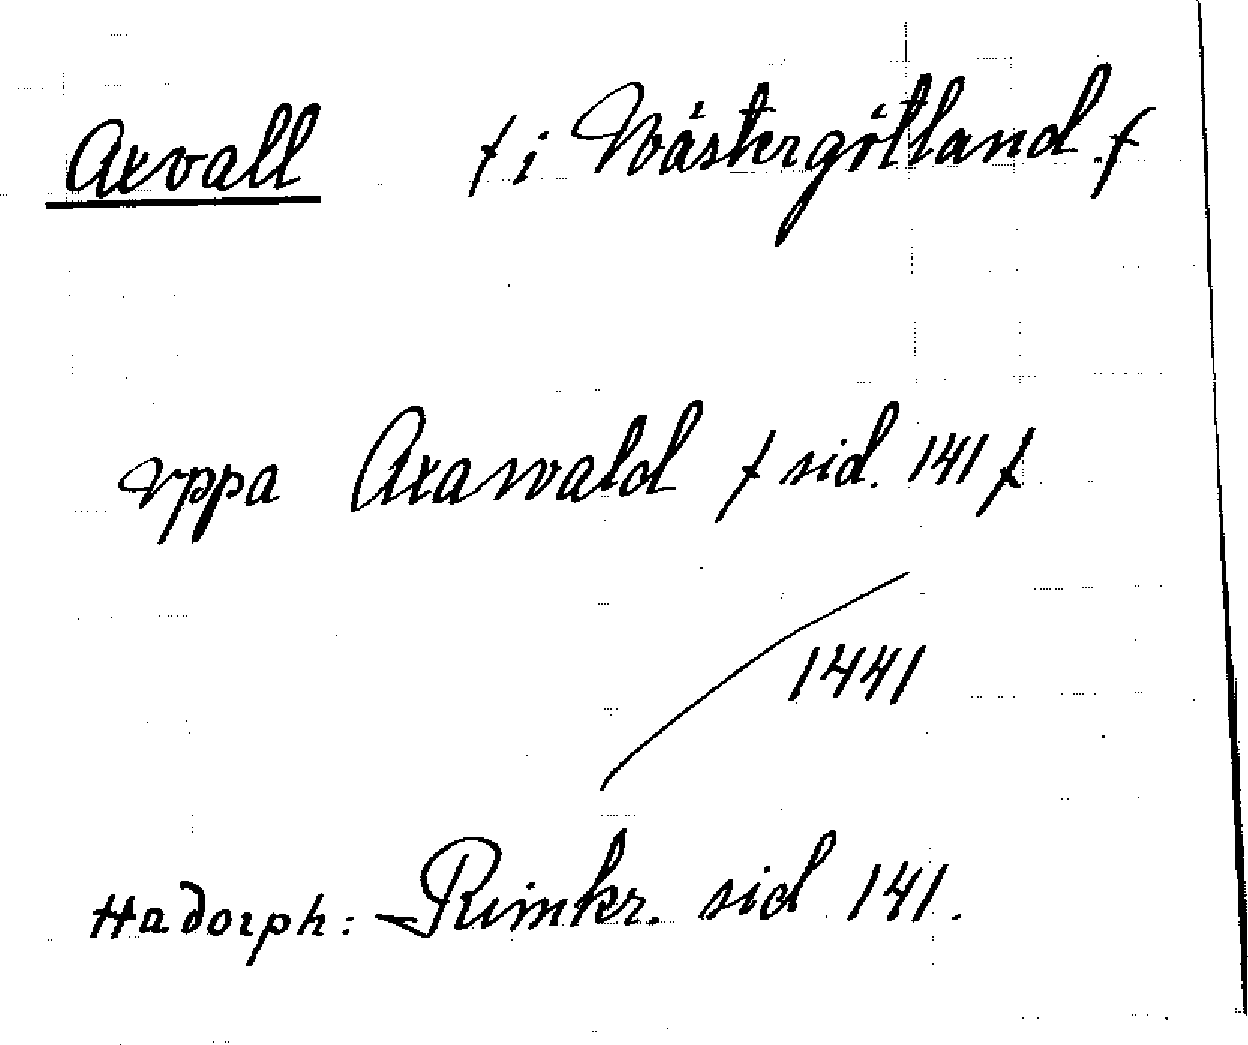 Axvall / i Wästergötland /
vppa Axawald / sid. 141 /
1441
Hadorph: Rimkr. sid 141.